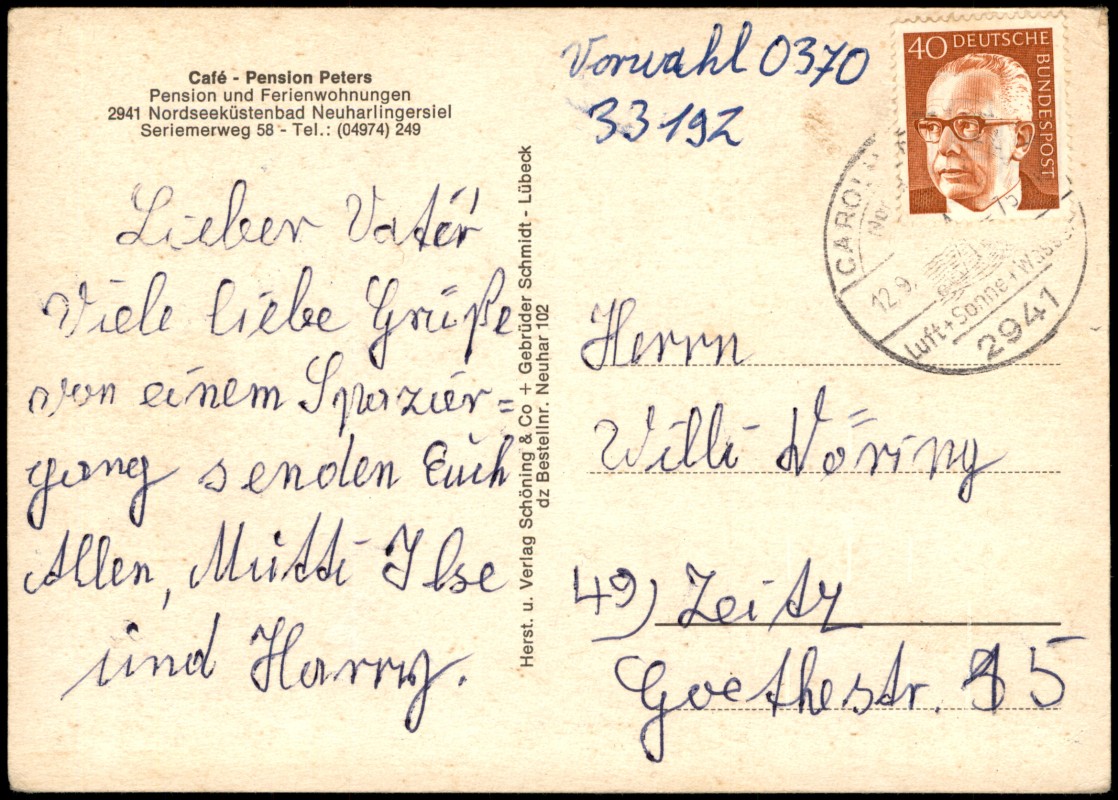 Café - Pension Peters
Pension und Ferienwohnungen
2941 Nordseeküstenbad Neuharlingersiel
Seriemerweg 58 - Tel.: (04974) 249
Lieber Vater
Viele liebe Grüße
von einem Spazier=
gang senden Euch
Allen, Mutti Ilse
und Harry.
Herst. u. Verlag Schöning & Co + Gebrüder Schmidt - Lübeck
dz Bestellnr. Neuhar 102
Vorwahl 0370
33192
40 DEUTSCHE
BUNDESPOST
CAROL
12.9.
Luft+Sonne+Wasse
2941
Herrn
Willi Döring
49) Zeitz
Goethestr. 15